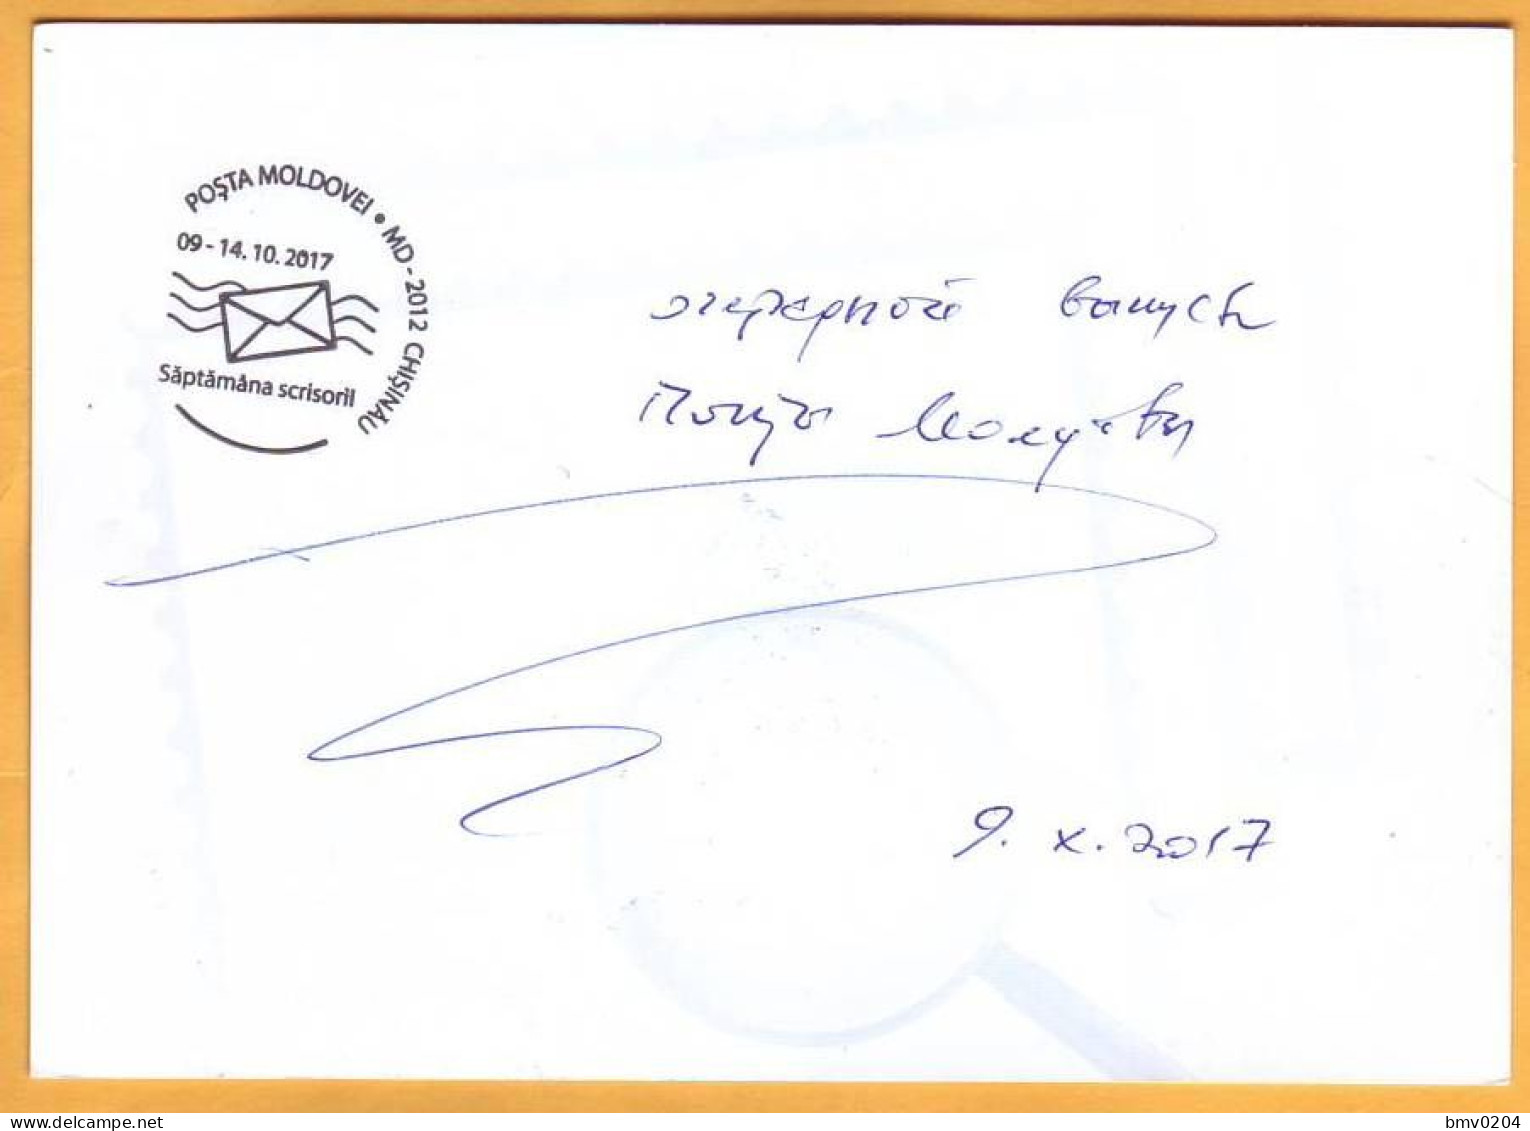 POȘTA MOLDOVEI • MD - 2012 CHIȘINĂU
09 - 14. 10. 2017
Săptămâna scrisorii
очередной выпуск
Почта Молдовы
9. X. 2017
delcampe.net
bmv0204